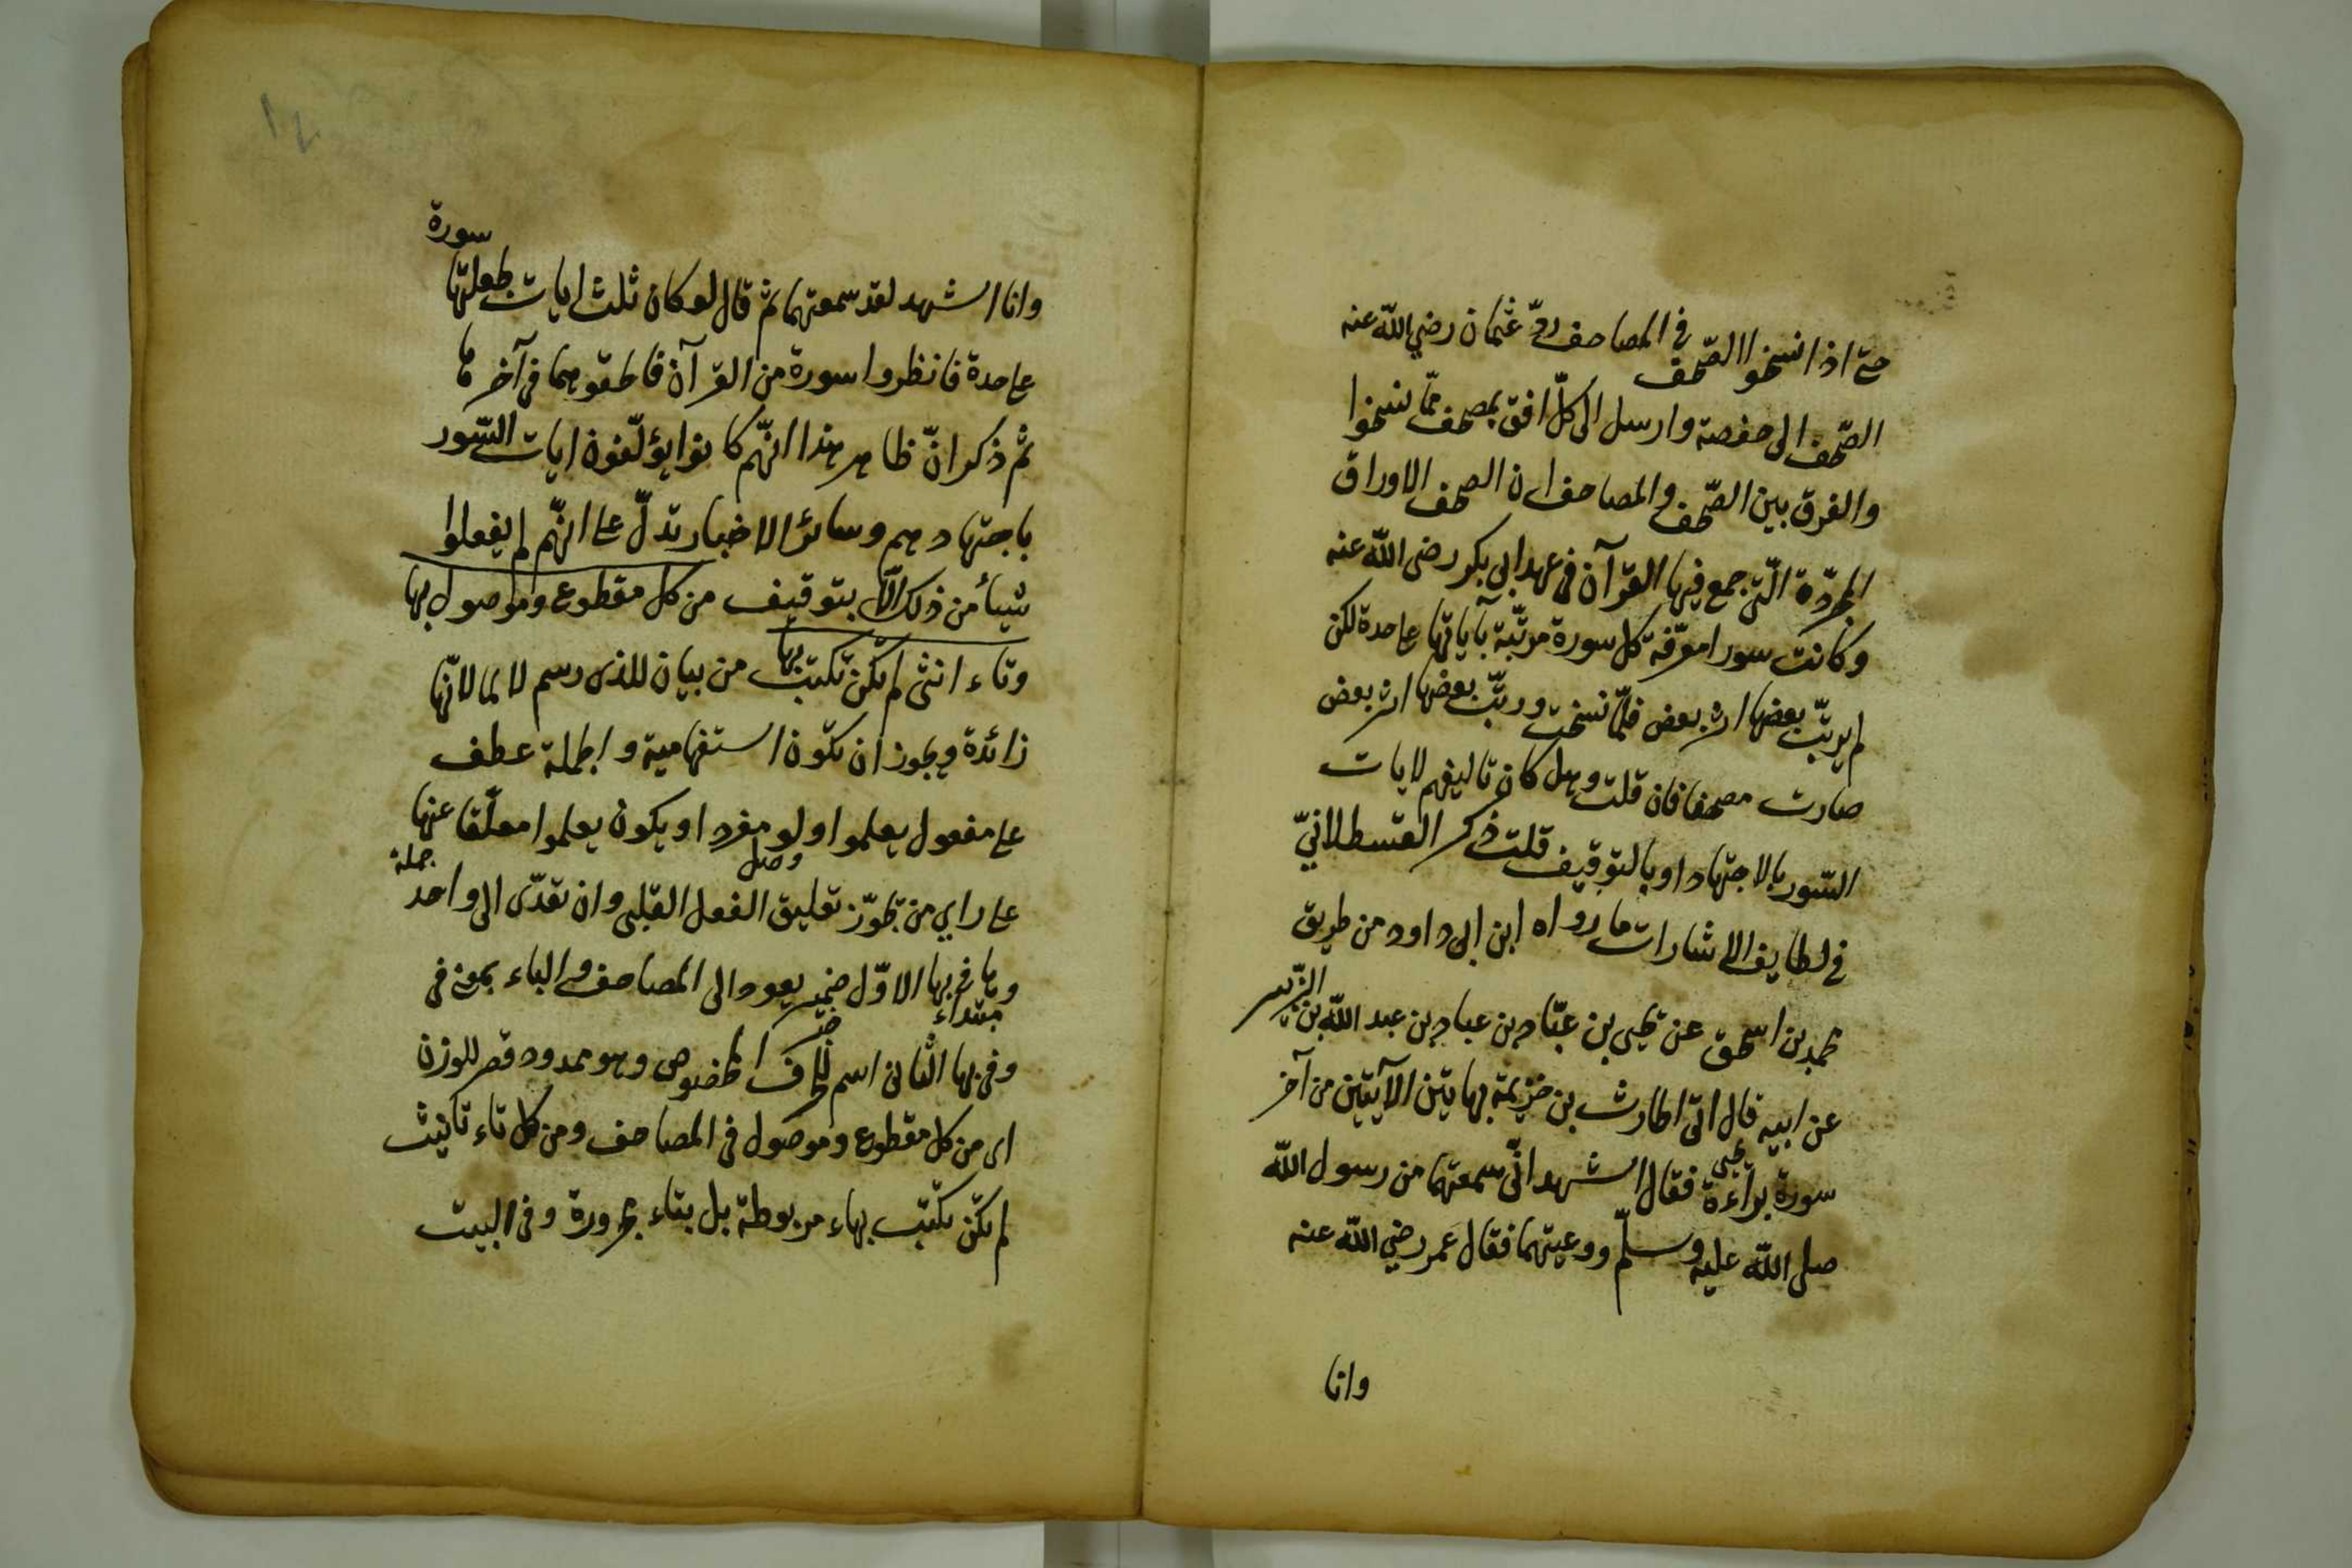 حتى اذا نسخوا الصّحف في المصاحف ردّ عثمان رضي الله عنه
الصّحف الى حفصة وارسل الى كلّ افق بمصحف ممّا نسخوا
والفرق بين الصّحف والمصاحف ان الصحف الاوراق
المجرّدة الّتى جمع فيها القرآن فى عهد ابى بكر رضى الله عنه
وكانت سورا مفرّقة كل سورة مرتّبة بآياتها على حدة لكن
لم يرتّب بعضها اثر بعض فلمّا نسخت ورتّب بعضها اثر بعض
صارت مصحفا فان قلت وهل كان تاليفهم لايات
السّور بالاجتهاد او بالتوقيف قلت ذكر القسطلانيّ
في لطايف الاشارات ما رواه ابن ابى داود من طريق
محمد بن اسحق عن يحيى بن عبّاد بن عباد بن عبد الله بن الزّبير
عن ابيه قال اتى الحارث بن خزيمة بهاتين الآيتين من آخر
سورة براءة فقال اشهد انّى سمعتهما من رسول الله
صلى الله عليه وسلّم ووعيتهما فقال عمر رضي الله عنه
وانا
وانا اشهد لقد سمعتهما ثم قال لو كان ثلث ايات لجعلتها سورة
على حدة فانظروا سورة من القرآن فالحقوهما فى آخرها
ثم ذكر انّ ظاهر هذا انّهم كانوا يؤلّفون ايات السّور
باجتهادهم وسائر الاخبار تدلّ على انّهم لم يفعلوا
شيأ من ذلك الّا بتوقيف من كل مقطوع وموصول بها
وتاء انثى لم تكن تكتب بها من بيان للذى رسم لا لما لانّها
زائدة ويجوز ان تكون استفهامية والجملة عطف
على مفعول يعلموا ولو مفرد او يكون يعلموا معلّقا عنها
وصل
جملة
على راي من يجوّز تعليق الفعل القلبى وان تعدّى الى واحد
وها فى بها الاوّل ضمير يعود الى المصاحف والباء بمعنى فى
مبتداء
خبر
وفى بها الثانى اسم للحرف المخصوص وهو ممدود قصر للوزن
اى من كل مقطوع وموصول فى المصاحف ومن كل تاء تانيث
لم تكن تكتب بهاء مربوطة بل بتاء مجرورة وفى البيت